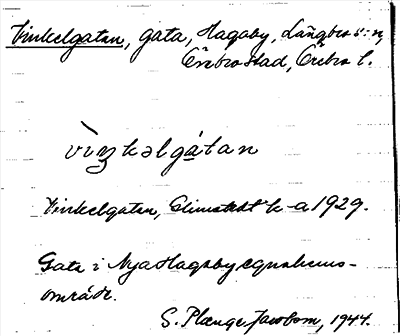 Vinkelgatan, gata, Hagaby, Längbro s:n,
Örebro stad, Örebro l.
vìŋkəlgátan
Vinkelgatan, k-a 1929.
Gata i Nya Hagaby egnahems-
område.
S. Plænge Jacobson, 1944.